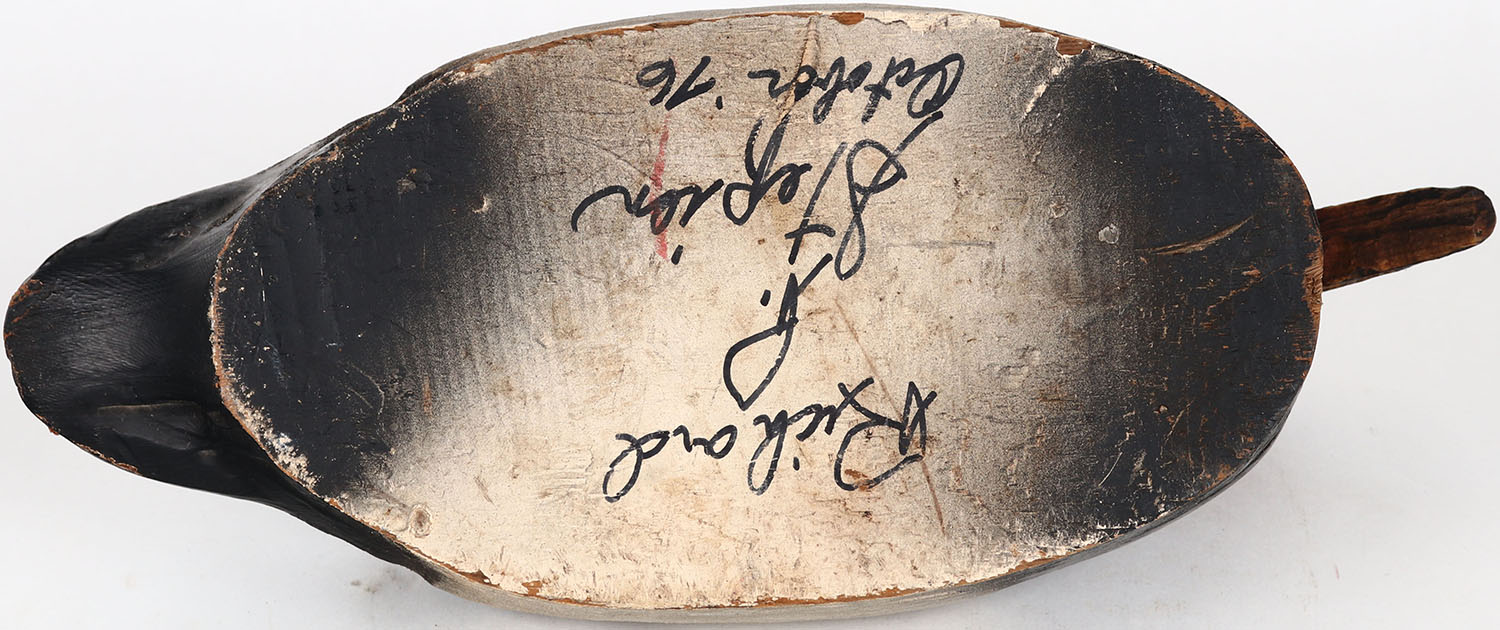 Richard
P.
Stepien
October '76